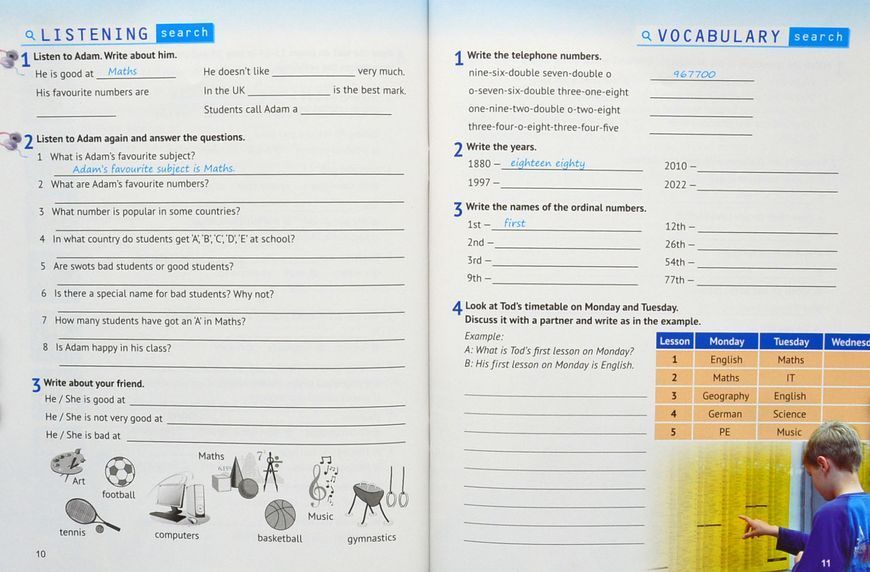 LISTENING search
1 Listen to Adam. Write about him.
He is good at Maths
His favourite numbers are
He doesn't like ____________ very much.
In the UK ____________ is the best mark.
Students call Adam a ____________
2 Listen to Adam again and answer the questions.
1 What is Adam's favourite subject?
Adam's favourite subject is Maths.
2 What are Adam's favourite numbers?
3 What number is popular in some countries?
4 In what country do students get 'A', 'B', 'C', 'D', 'E' at school?
5 Are swots bad students or good students?
6 Is there a special name for bad students? Why not?
7 How many students have got an 'A' in Maths?
8 Is Adam happy in his class?
3 Write about your friend.
He / She is good at
He / She is not very good at
He / She is bad at
Art
football
Maths
Music
tennis
computers
basketball
gymnastics
10
VOCABULARY search
1 Write the telephone numbers.
nine-six-double seven-double o 967700
o-seven-six-double three-one-eight
one-nine-two-double o-two-eight
three-four-o-eight-three-four-five
2 Write the years.
1880 – eighteen eighty
1997 –
2010 –
2022 –
3 Write the names of the ordinal numbers.
1st – first
2nd –
3rd –
9th –
12th –
26th –
54th –
77th –
4 Look at Tod's timetable on Monday and Tuesday.
Discuss it with a partner and write as in the example.
Example:
A: What is Tod's first lesson on Monday?
B: His first lesson on Monday is English.
Lesson Monday Tuesday Wednesd
1 English Maths
2 Maths IT
3 Geography English
4 German Science
5 PE Music
11